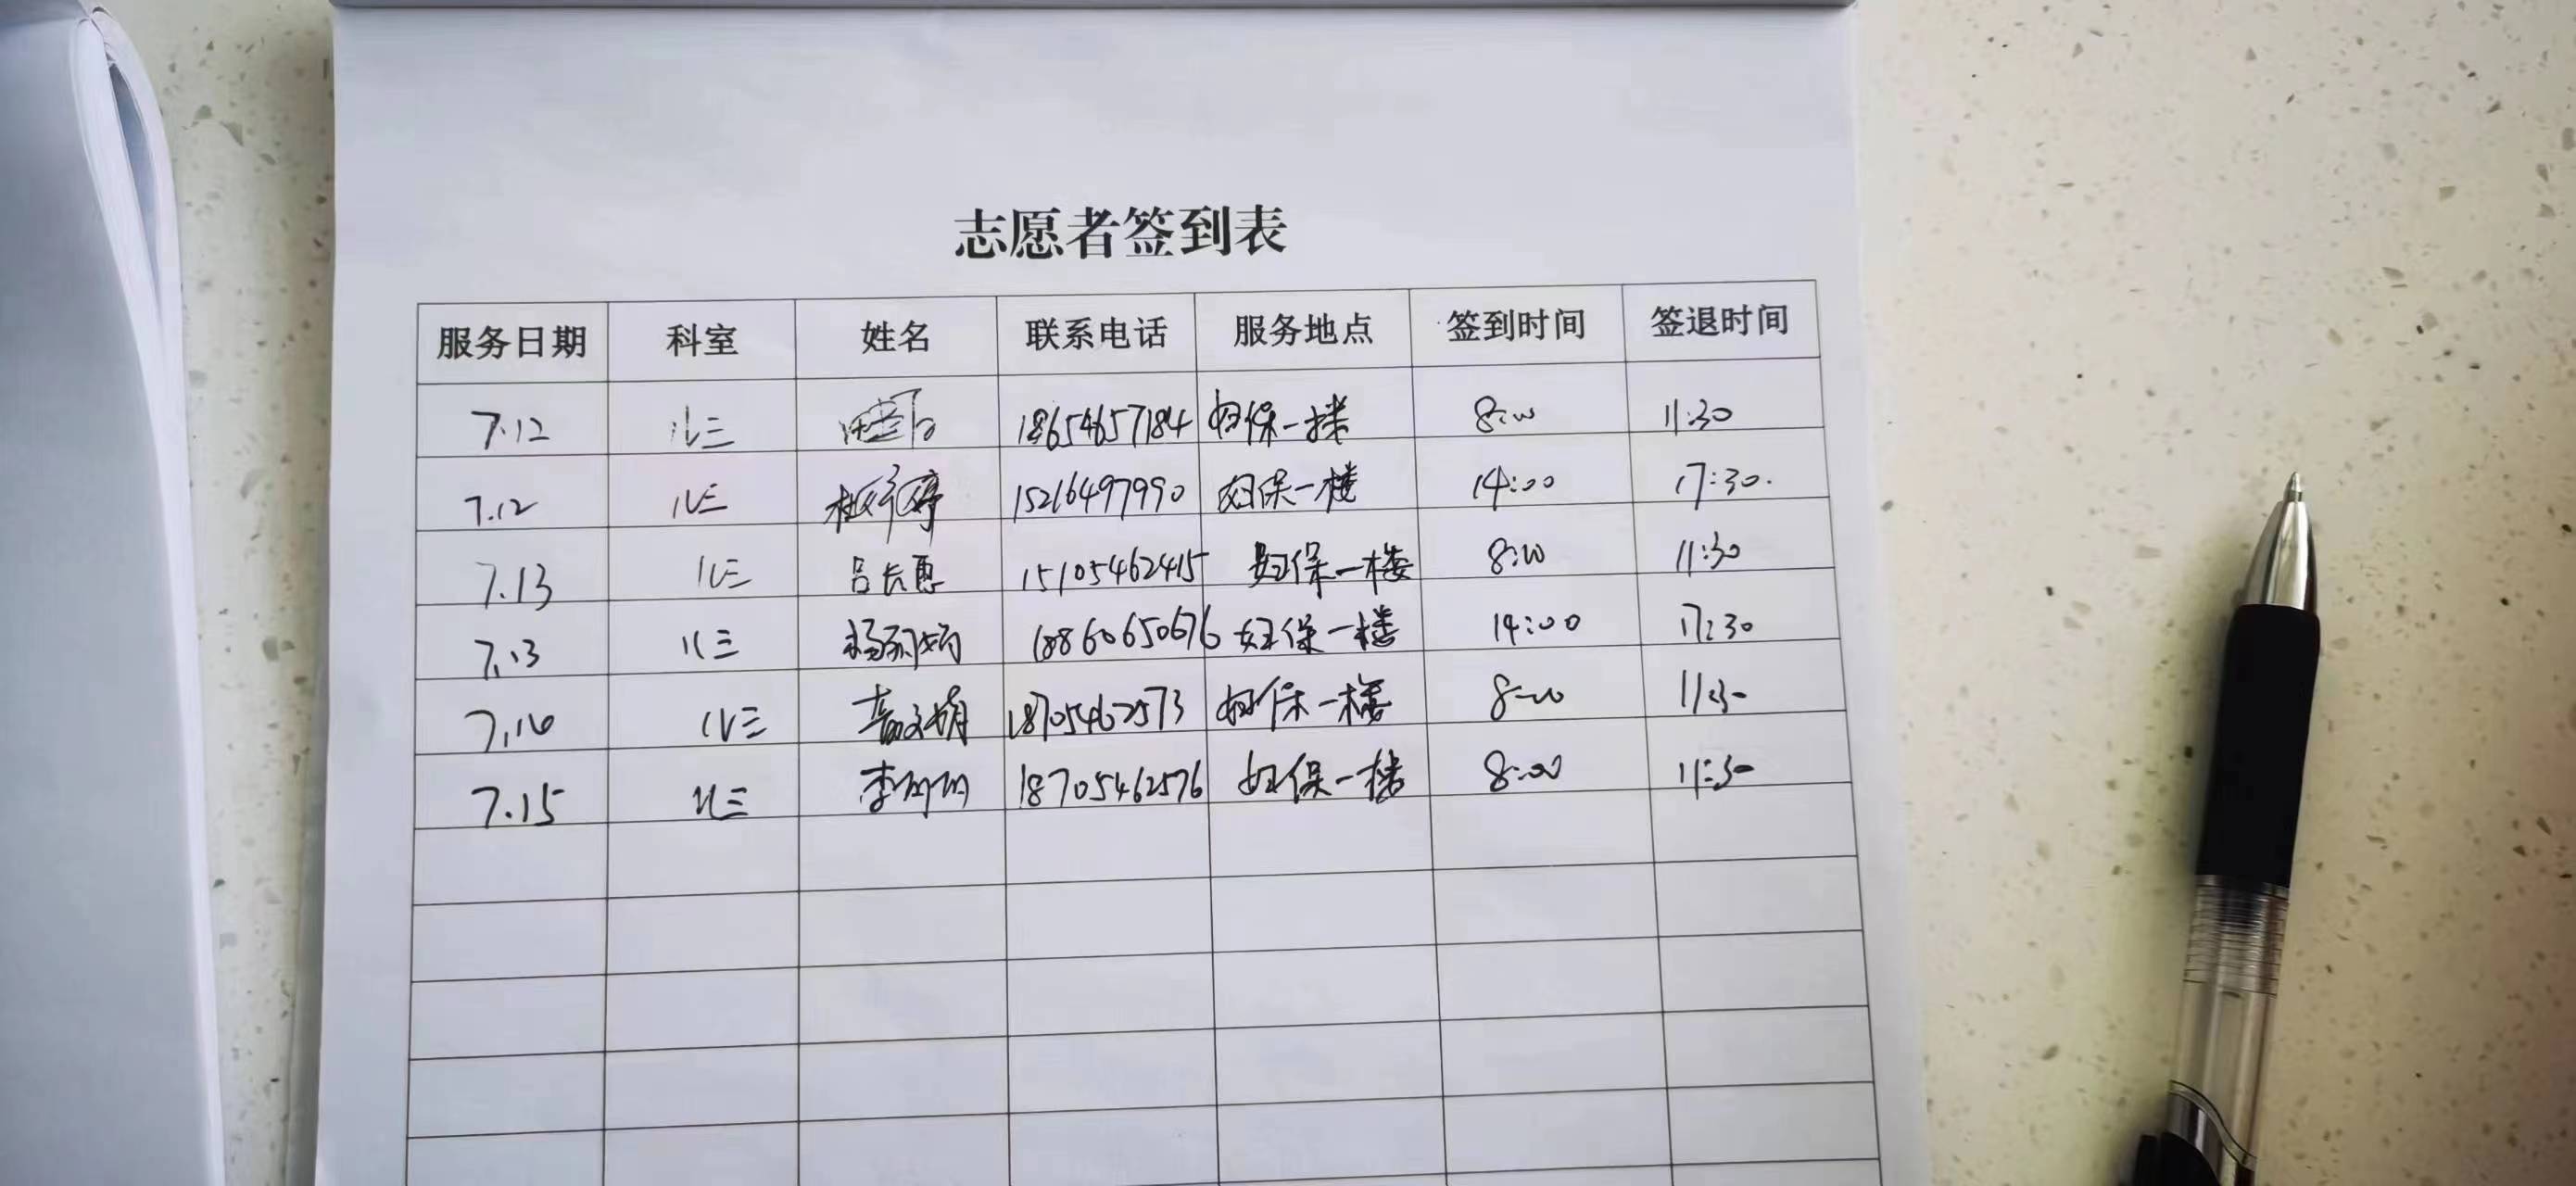 志愿者签到表
服务日期 科室 姓名 联系电话 服务地点 签到时间 签退时间
7.12 儿三 18654657184 妇保一楼 8:00 11:30
7.12 儿三 15216497990 妇保一楼 14:00 17:30.
7.13 儿三 吕长惠 15105462415 妇保一楼 8:00 11:30
7.13 儿三 18860650676 妇保一楼 14:00 17:30
7.14 儿三 18705462573 妇保一楼 8:00 11:30
7.15 儿三 18705462576 妇保一楼 8:00 11:30